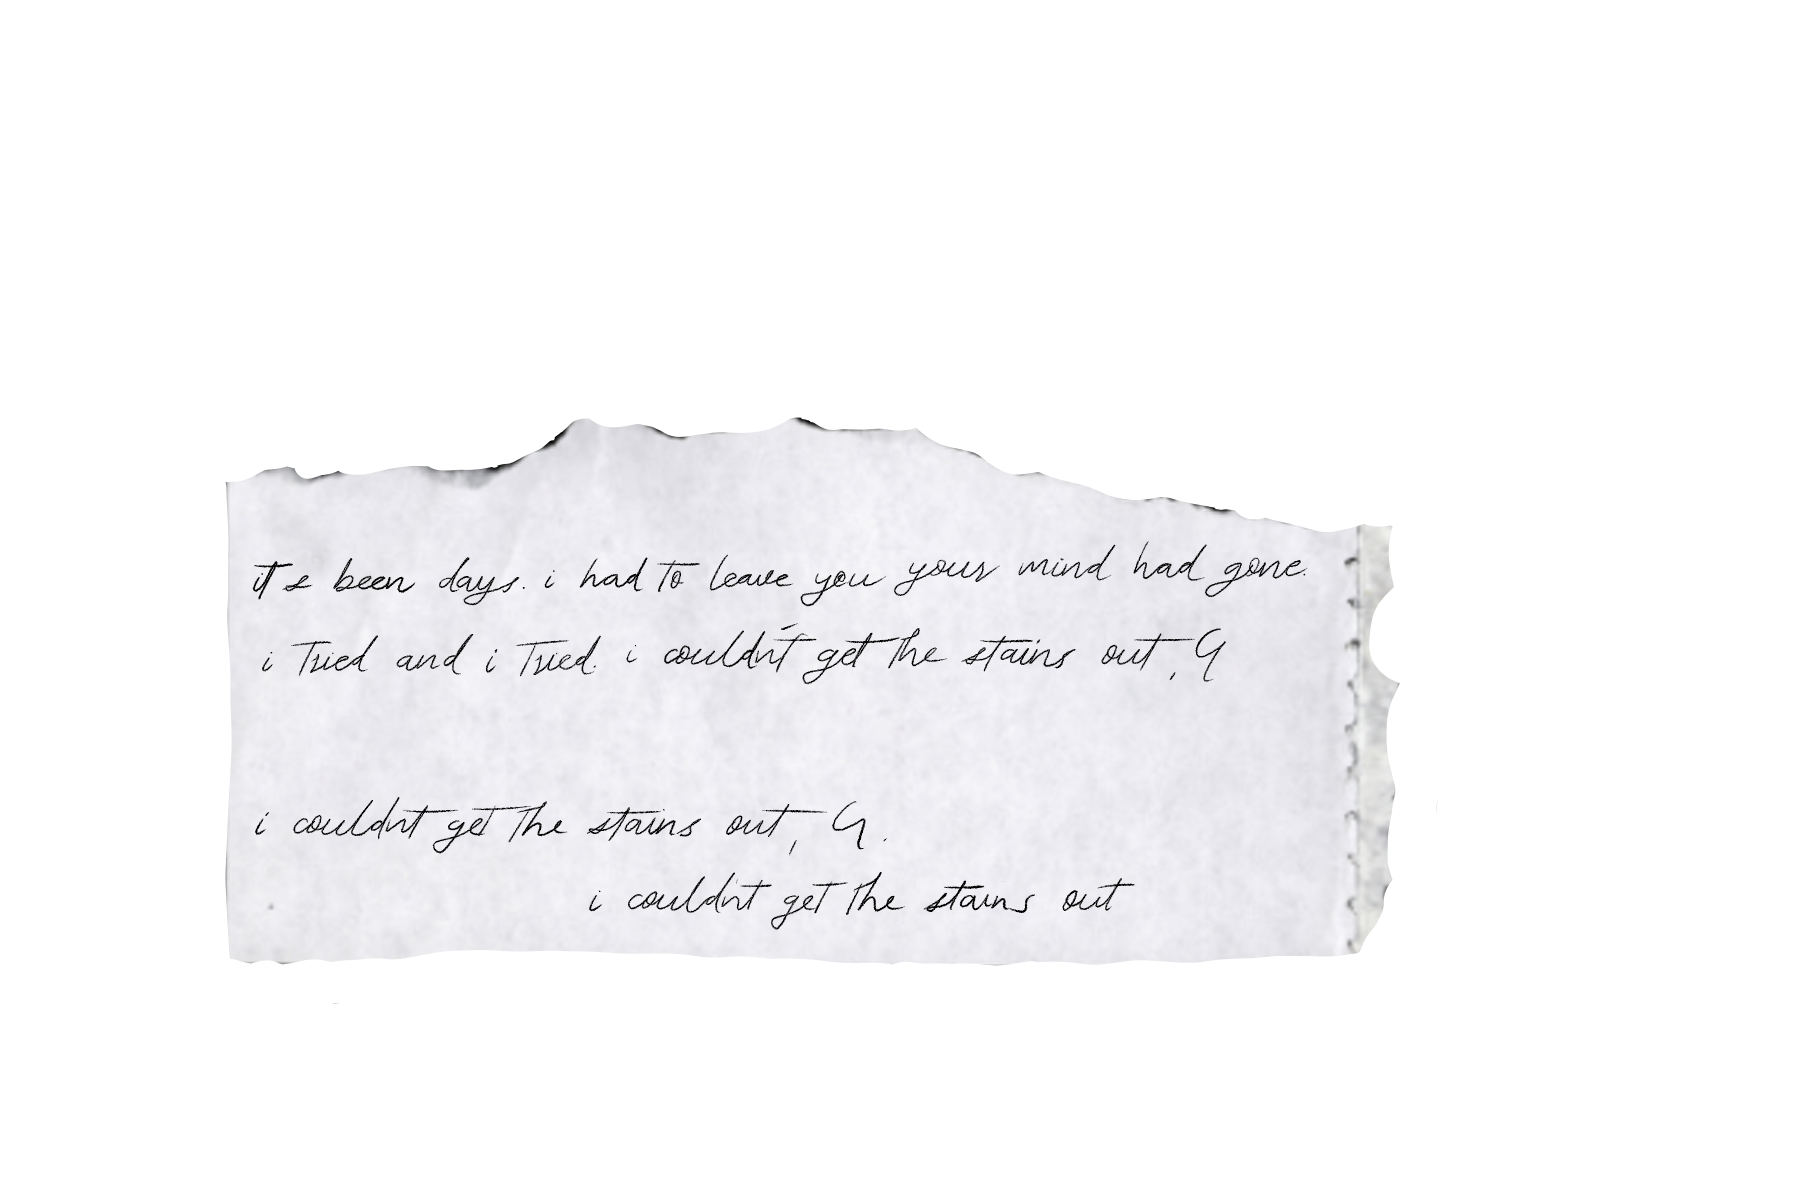 it's been days. i had to leave you your mind had gone.
i tried and i tried. i couldn't get the stains out, G
i couldnt get the stains out, G.
i couldn't get the stains out